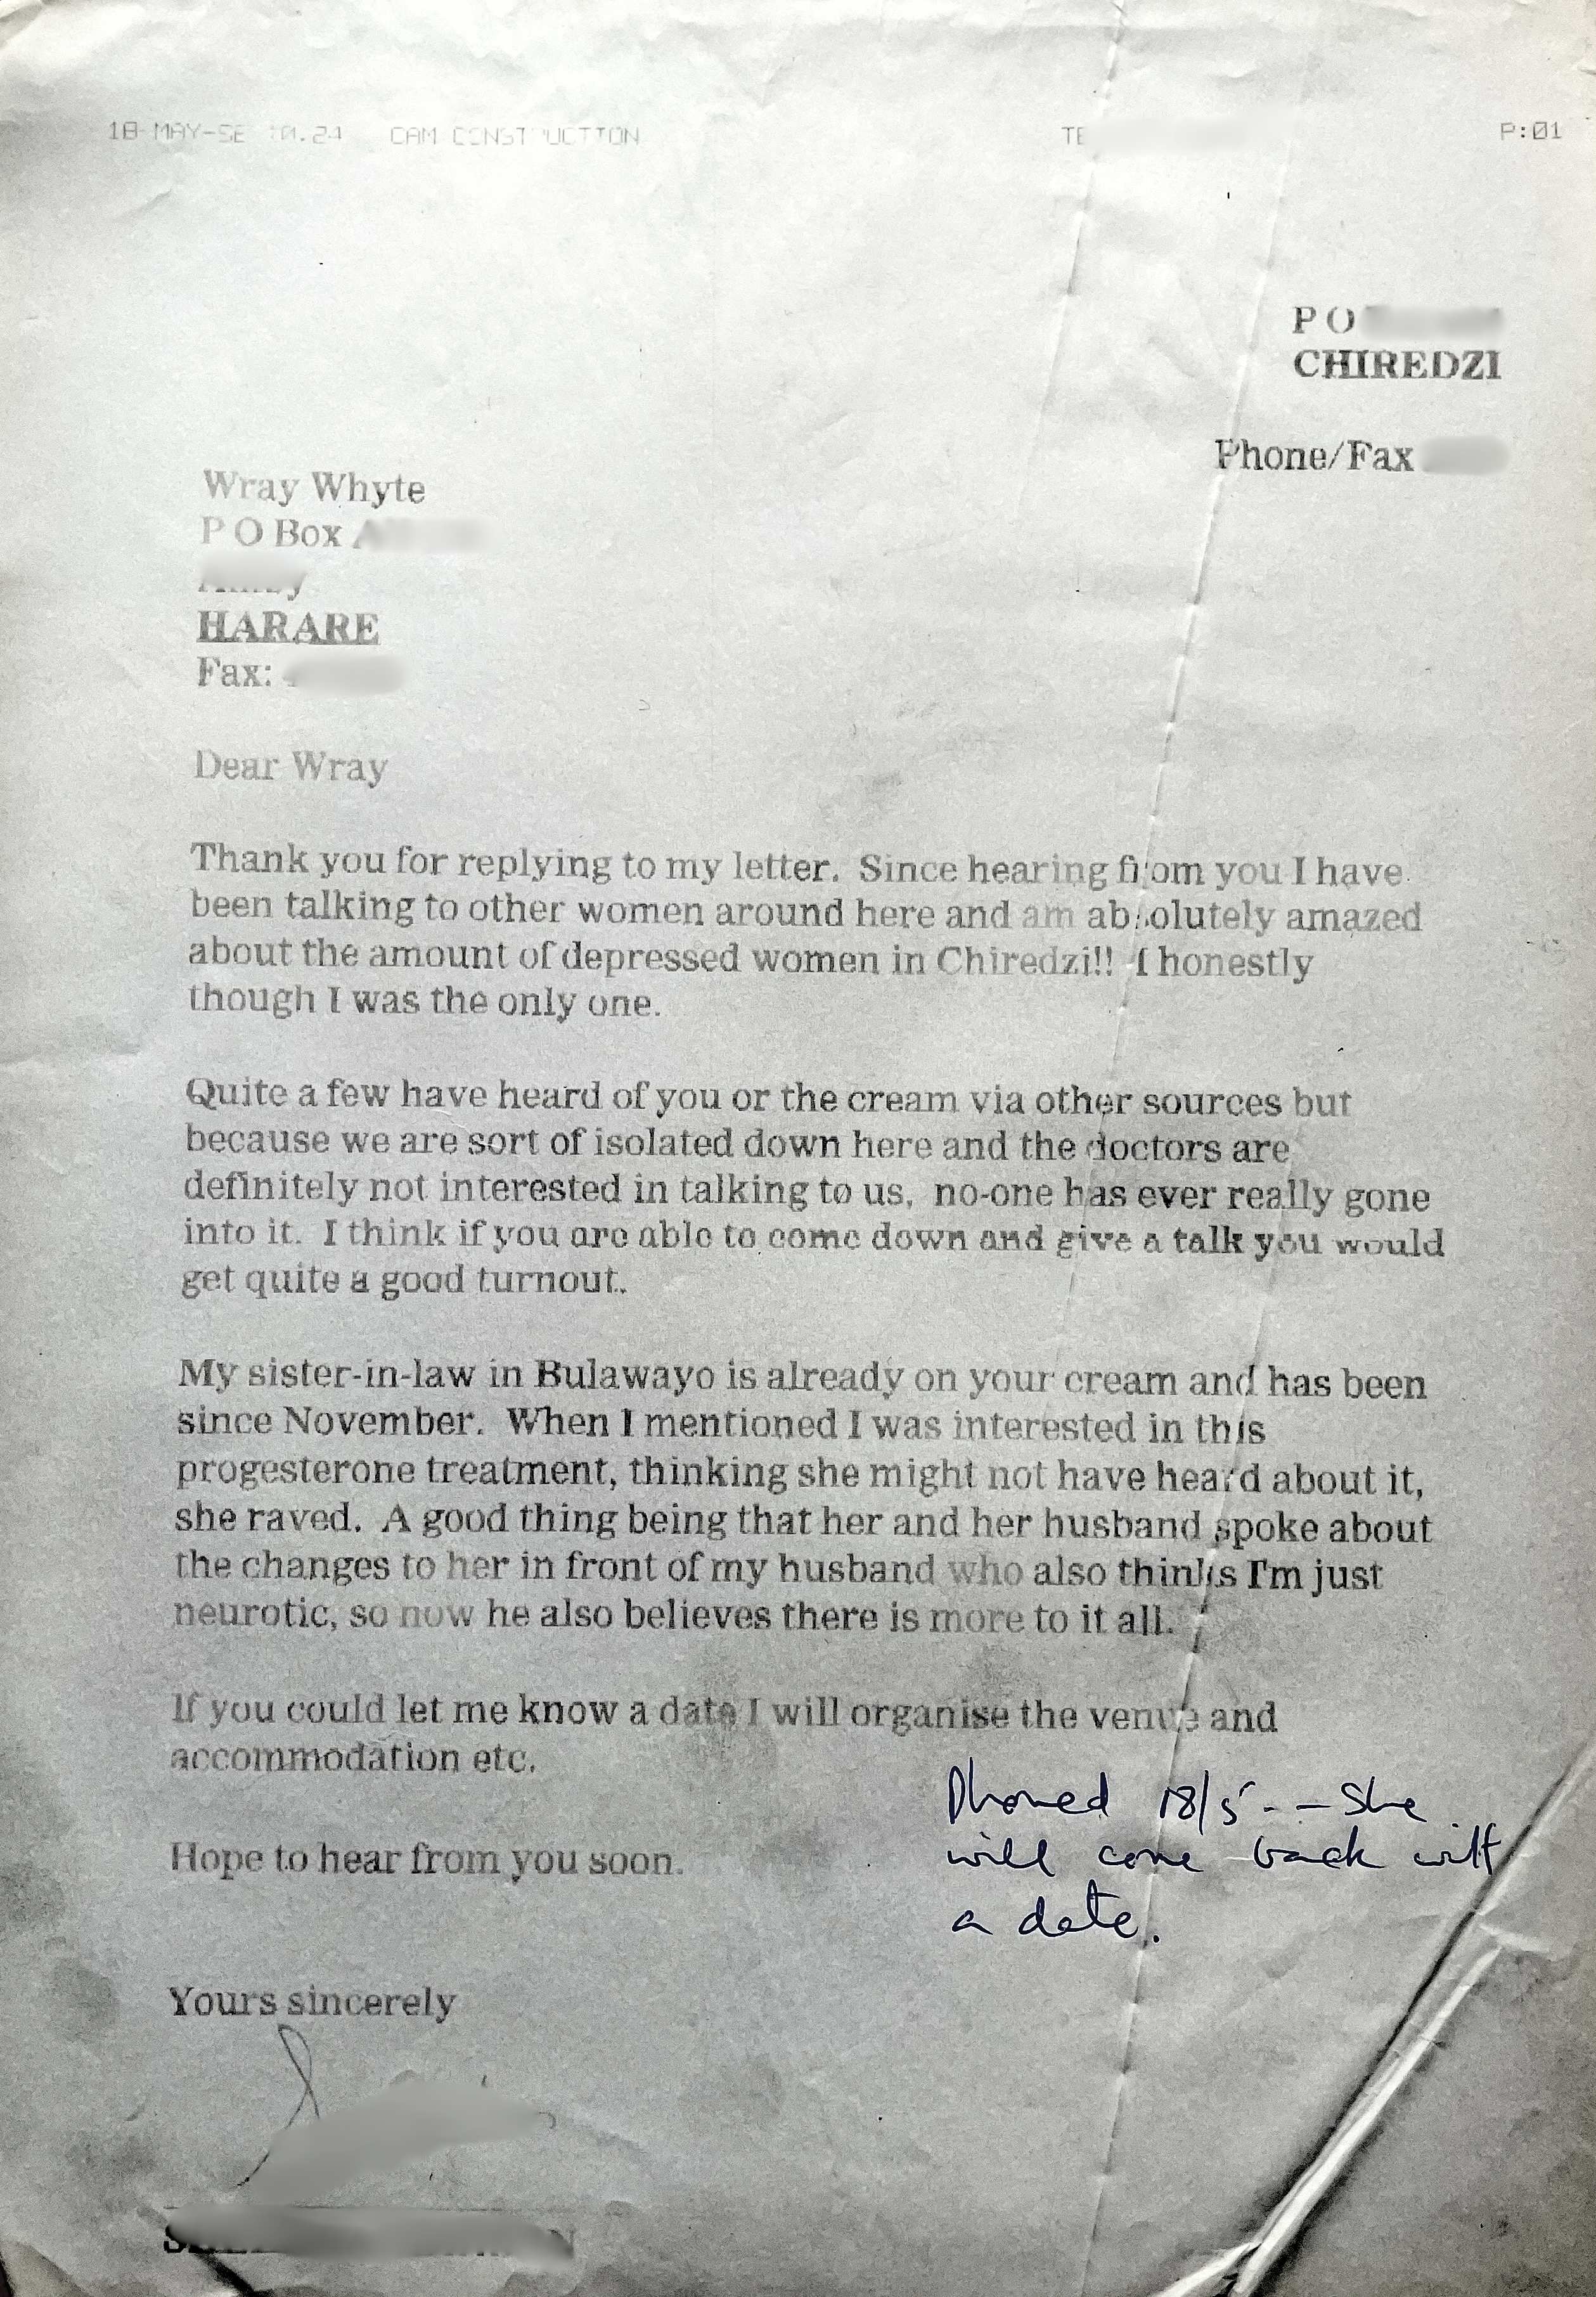 CAM CONSTRUCTION
P:01
P O
CHIREDZI
Phone/Fax
Wray Whyte
P O Box
HARARE
Fax:
Dear Wray
Thank you for replying to my letter. Since hearing from you I have
been talking to other women around here and am absolutely amazed
about the amount of depressed women in Chiredzi!! I honestly
though I was the only one.
Quite a few have heard of you or the cream via other sources but
because we are sort of isolated down here and the doctors are
definitely not interested in talking to us, no-one has ever really gone
into it. I think if you are able to come down and give a talk you would
get quite a good turnout.
My sister-in-law in Bulawayo is already on your cream and has been
since November. When I mentioned I was interested in this
progesterone treatment, thinking she might not have heard about it,
she raved. A good thing being that her and her husband spoke about
the changes to her in front of my husband who also thinks I'm just
neurotic, so now he also believes there is more to it all.
If you could let me know a date I will organise the venue and
accommodation etc.
Phoned 18/5 - - She
will come back with
a date.
Hope to hear from you soon.
Yours sincerely